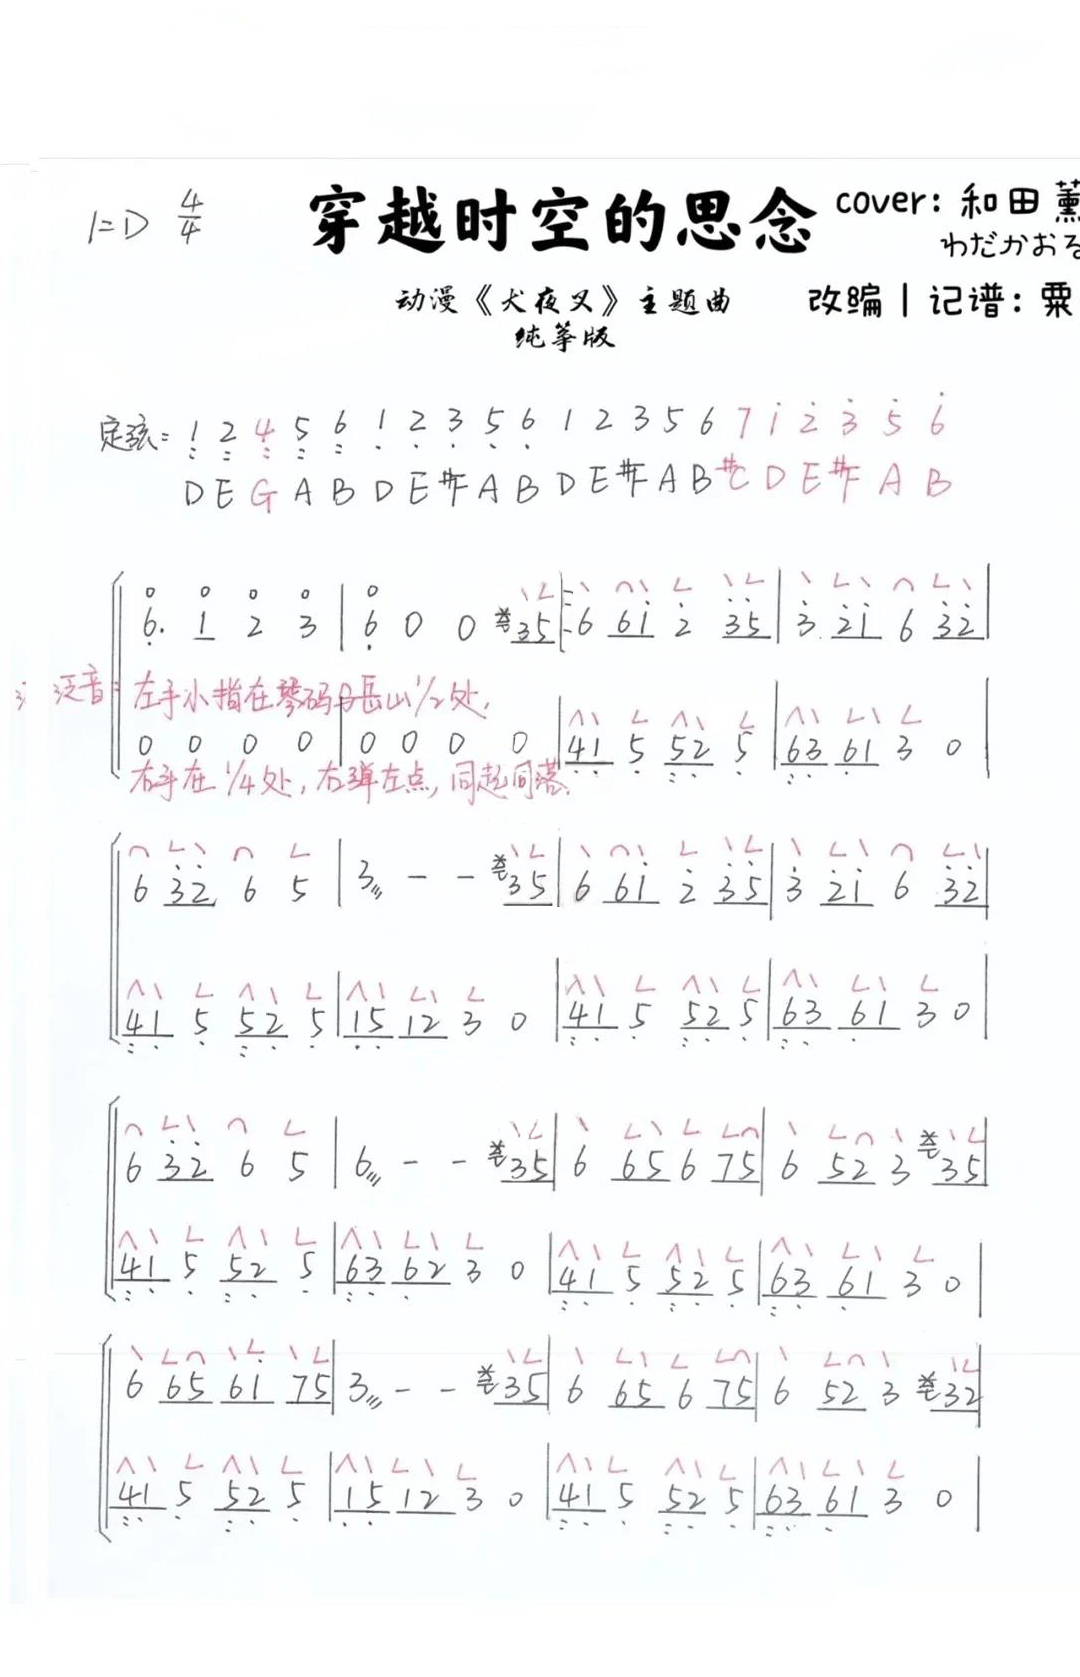 1=D 4/4 穿越时空的思念 cover: 和田薰
わだかおる
动漫《犬夜叉》主题曲 改编 | 记谱: 粟
纯筝版
定弦: 1 2 4 5 6 1 2 3 5 6 1 2 3 5 6 7 1 2 3 5 6
D E G A B D E #F A B D E #F A B #C D E #F A B
6. 1 2 3 | 6 0 0 35 |: 6 61 2 35 | 3. 21 6 32 |
泛音: 左手小指在琴码与岳山1/2处,
0 0 0 0 | 0 0 0 0 | 41 5 52 5 | 63 61 3 0 |
右手在1/4处, 右弹左点, 同起同落.
6 32 6 5 | 3 - - 35 | 6 61 2 35 | 3 21 6 32 |
41 5 52 5 | 15 12 3 0 | 41 5 52 5 | 63 61 3 0 |
6 32 6 5 | 6 - - 35 | 6 65 6 75 | 6 52 3 35 |
41 5 52 5 | 63 62 3 0 | 41 5 52 5 | 63 61 3 0 |
6 65 61 75 | 3 - - 35 | 6 65 6 75 | 6 52 3 32 |
41 5 52 5 | 15 12 3 0 | 41 5 52 5 | 63 61 3 0 |